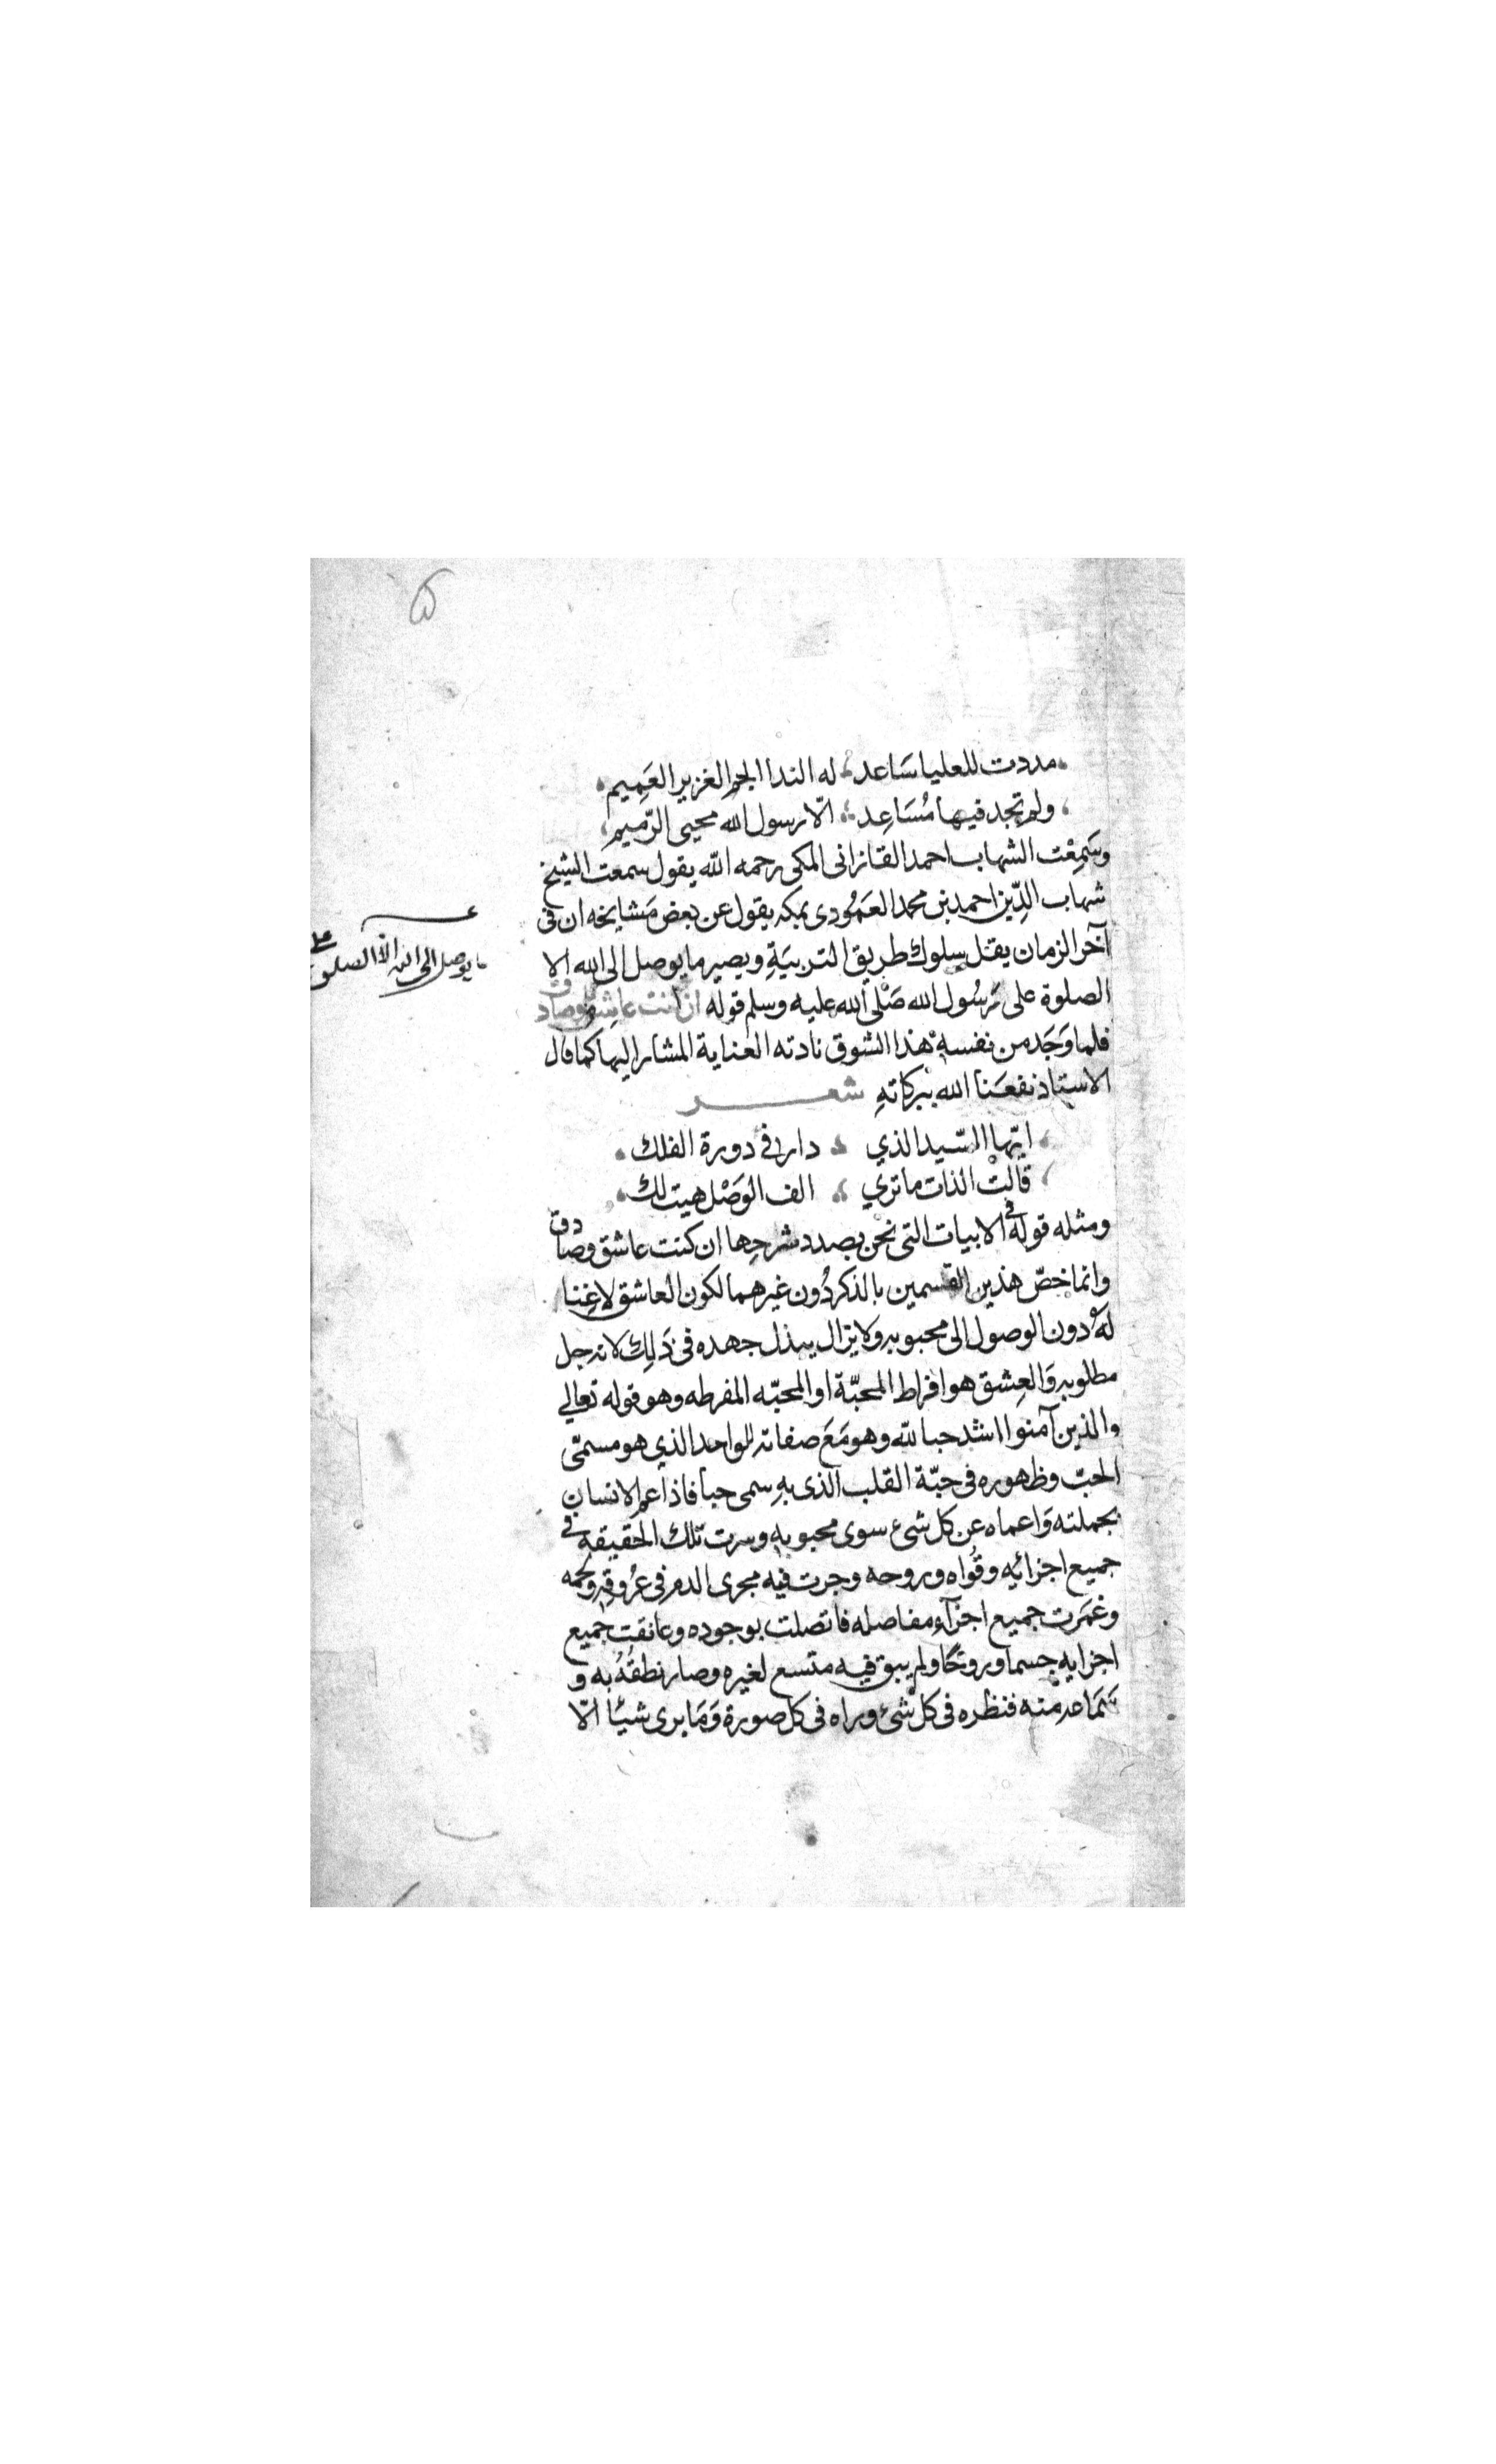 مددت للعليا سَاعد له الندا الجم الغزير العَمِيم
ولم تجد فيها مُسَاعِد الّا رسول الله محيى الرّميم
وسَمِعْت الشهاب احمد القازانى المكى رحمه الله يقول سمعت الشيخ
شهاب الدِّين احمد بن محمد العَمُودى بمكه يقول عن بعض مَشايخه ان فى
آخر الزمان يقل سلوك طريق التربيَةِ ويصير ما يوصل الى الله الا
الصلوة على رَسُول الله صَلّى الله عليه وسلم قوله ان كنت عاشق وصادق
فلما وَجَد من نفسهِ هذا الشوق نادته العناية المشار اليها كما قال
الاستاذ نفعَنا الله ببركاتهِ شعر
ايّها السّيد الذي دار فى دورة الفلك
قالتْ الذات ما تري الف الوَصْل هيت لك
ومثله قوله فى الابيات التى نحن بصدد شرحِها ان كنت عاشق وصادق
وانما خصّ هذين القسمين بالذكر دُون غيرهما لكون العاشق لا غِنا
لهُ دون الوصول الى محبوبه ولا يزال يبذل جهده فى ذَلِكَ لانه جل
مطلوبه وَالعِشق هو افراط المحبّة او المحبّه المفرطه وهو قوله تعالي
والذين آمنوا اشد حبا لله وهو مَعَ صفاته للواحد الذي هو مسمّى
الحبّ وظهوره فى حبّة القلب الذى بهِ سمى حبا فاذا عم الانسان
بجملته وَاعماه عن كل شئ سوى محبوبهِ وسرت تلك الحقيقه فى
جميع اجزائِهِ وقُواه وروحه وجرت فيه مجرى الدم فى عرُوقِه ولحمه
وغمَرت جميع اجزآءِ مفاصله فاتصلت بوجوده وعانقت جميع
اجزايهِ جسما وروحًا ولم يبق فيه متسع لغيره وصار نطقهُ به و
سَمَاعه منه فنظره فى كل شئ وراه فى كل صورة وَمَا يرى شيئًا الّا
ما يوصل الى الله الا الصلوة على